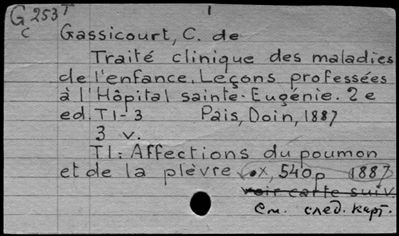 G 253T
C
Gassicourt, C. de
Traité clinique des maladies
de l'enfance. Leçons professées
à l'Hôpital sainte-Eugénie. 2e
ed. T1-3 Pais, Doin, 1887
3 v.
T1: Affections du poumon
et de la plèvre x, 540p 1887
voir carte suiv.
См. след. карт.